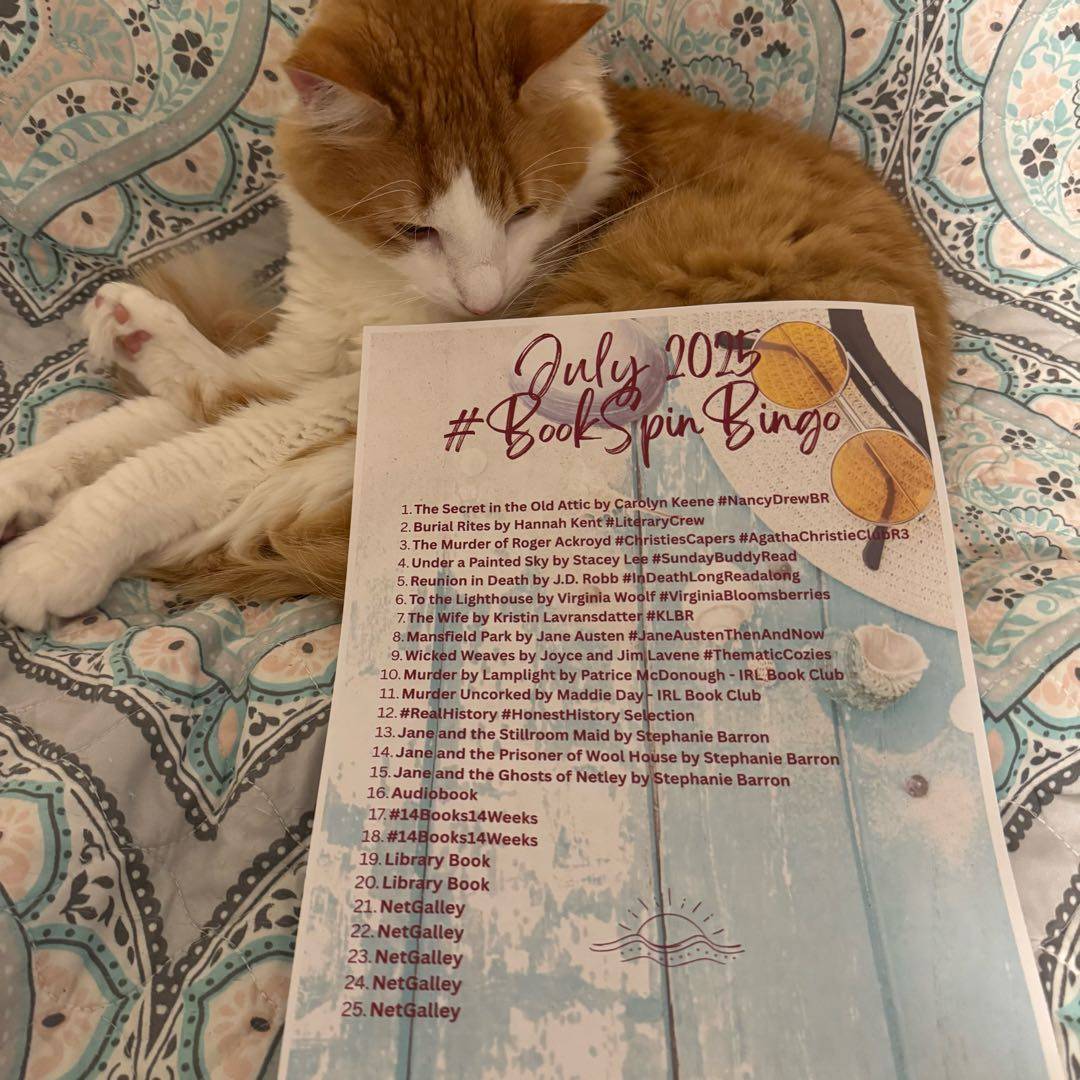 July 2025
#BookSpinBingo
1. The Secret in the Old Attic by Carolyn Keene #NancyDrewBR
2. Burial Rites by Hannah Kent #LiteraryCrew
3. The Murder of Roger Ackroyd #ChristiesCapers #AgathaChristieClubR3
4. Under a Painted Sky by Stacey Lee #SundayBuddyRead
5. Reunion in Death by J.D. Robb #InDeathLongReadalong
6. To the Lighthouse by Virginia Woolf #VirginiaBloomsberries
7. The Wife by Kristin Lavransdatter #KLBR
8. Mansfield Park by Jane Austen #JaneAustenThenAndNow
9. Wicked Weaves by Joyce and Jim Lavene #ThematicCozies
10. Murder by Lamplight by Patrice McDonough - IRL Book Club
11. Murder Uncorked by Maddie Day - IRL Book Club
12. #RealHistory #HonestHistory Selection
13. Jane and the Stillroom Maid by Stephanie Barron
14. Jane and the Prisoner of Wool House by Stephanie Barron
15. Jane and the Ghosts of Netley by Stephanie Barron
16. Audiobook
17. #14Books14Weeks
18. #14Books14Weeks
19. Library Book
20. Library Book
21. NetGalley
22. NetGalley
23. NetGalley
24. NetGalley
25. NetGalley